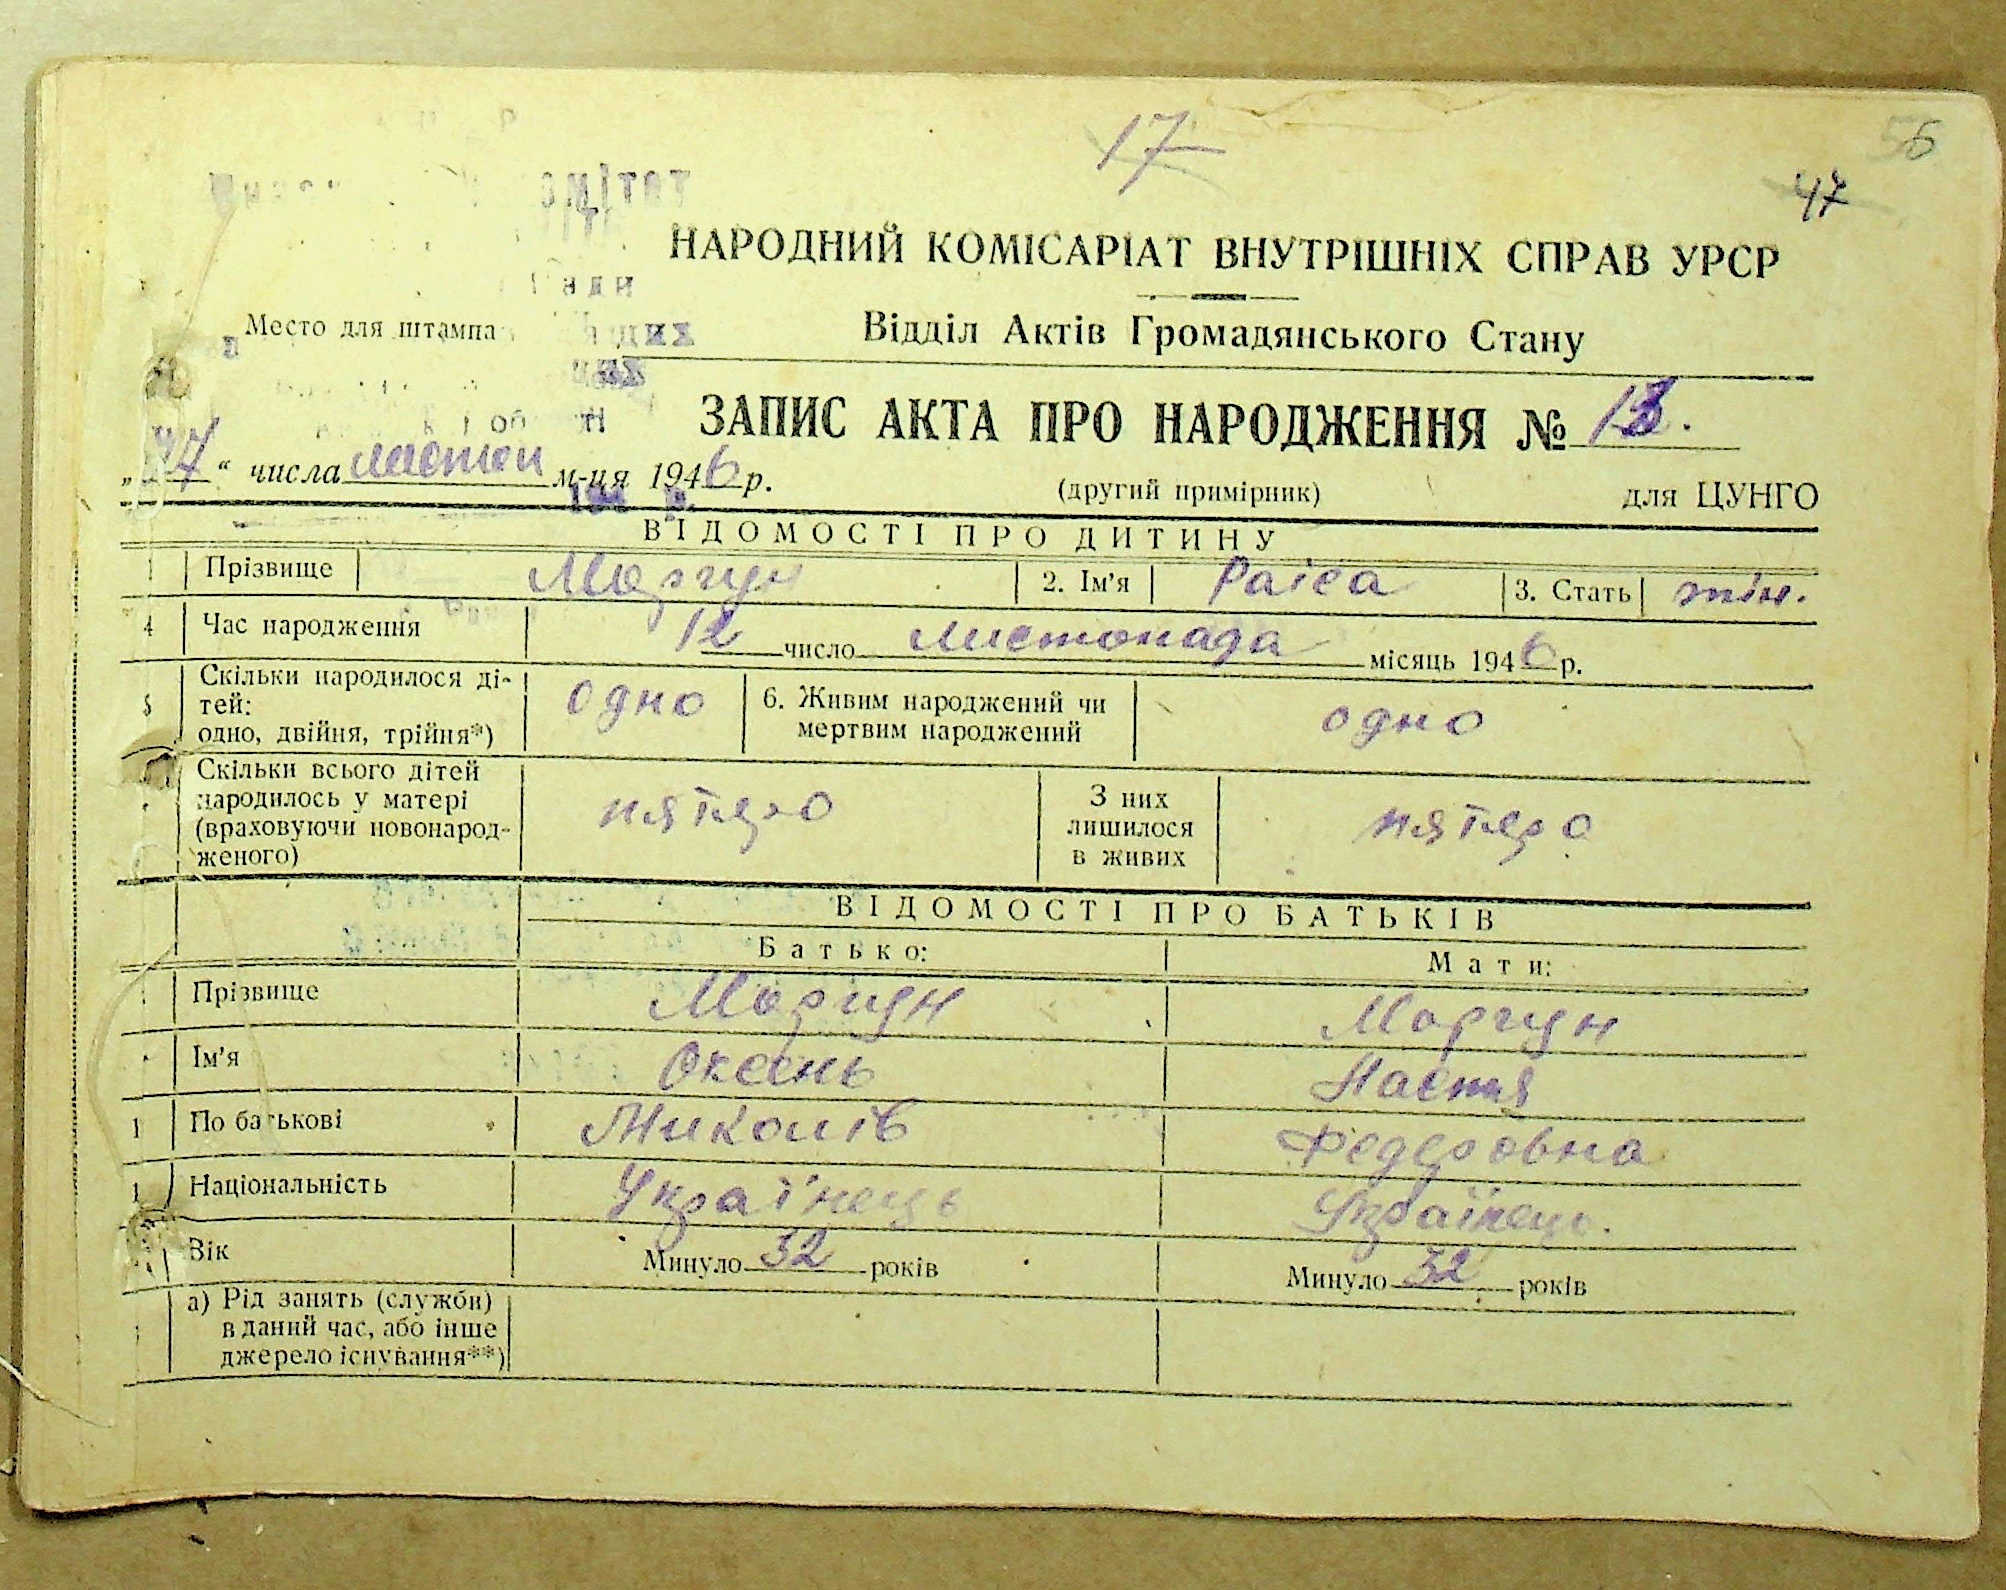 17
56
47
НАРОДНИЙ КОМІСАРІАТ ВНУТРІШНІХ СПРАВ УРСР
Место для штампа
Відділ Актів Громадянського Стану
ЗАПИС АКТА ПРО НАРОДЖЕННЯ № 13.
" числа листоп м-ця 1946 р.
(другий примірник) для ЦУНГО
ВІДОМОСТІ ПРО ДИТИНУ
Прізвище Моргун 2. Ім'я Раіса 3. Стать жін.
4 Час народження 12 число листопада місяць 1946 р.
Скільки народилося ді-
5 тей: одно 6. Живим народжений чи одно
одно, двійня, трійня*) мертвим народжений
Скільки всього дітей
народилось у матері пятеро З них пятеро
(враховуючи новонарод- лишилося
женого) в живих
ВІДОМОСТІ ПРО БАТЬКІВ
Батько: Мати:
Прізвище Моргун Моргун
Ім'я Оксень Настя
1 По батькові Миколів Федеровна
1 Національність Україньець Українець.
Вік Минуло 32 років Минуло 32 років
а) Рід занять (служби)
в даний час, або інше
джерело існування**)